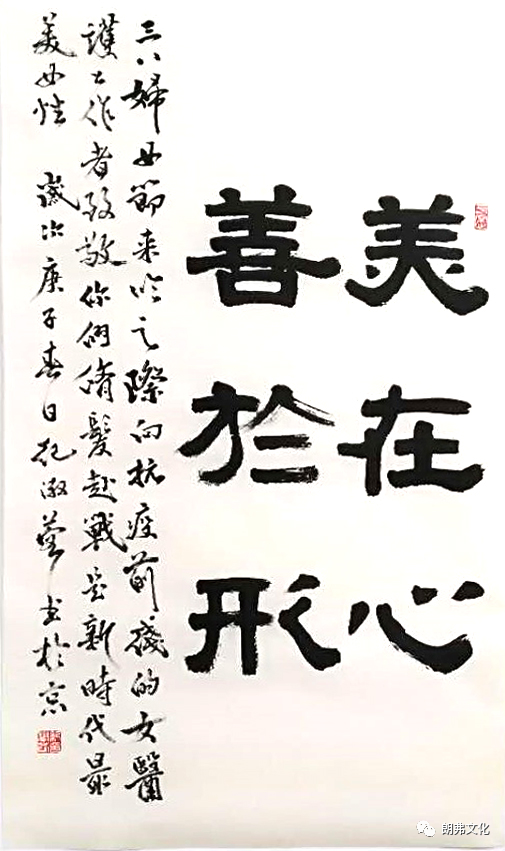 美在心
善於形
三八婦女節来临之際向抗疫前綫的女醫
護工作者致敬你們髮赴戰是新時代最
美女性 歲次庚子春日紀淑书於京
朗弗文化